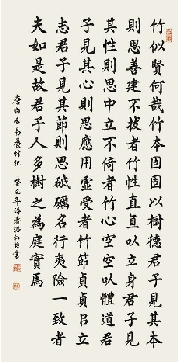 竹似賢何哉竹本固固以樹德君子見其本
則思善建不拔者竹性直直以立身君子見
其性則思中立不倚者竹心空空以體道君
子見其心則思應用虛受者竹節貞貞以立
志君子見其節則思砥礪名行夷險一致者
夫如是故君子人多樹之為庭實焉
唐白居易養竹記